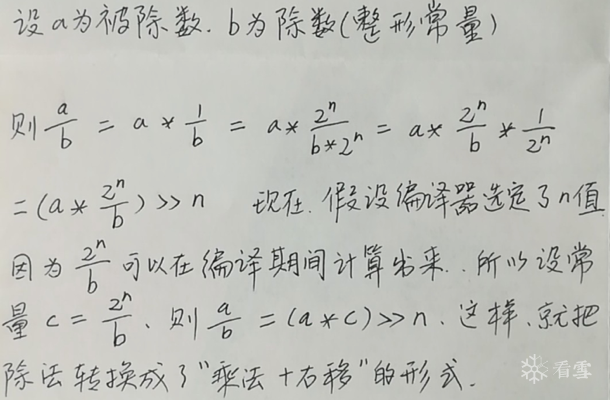 设a为被除数. b为除数(整形常量)
则 a/b = a * 1/b = a * 2ⁿ/(b*2ⁿ) = a * 2ⁿ/b * 1/2ⁿ
= (a * 2ⁿ/b) >> n 现在. 假设编译器选定了n值
因为 2ⁿ/b 可以在编译期间计算出来. 所以设常
量 c = 2ⁿ/b、则 a/b = (a * c) >> n. 这样、就把
除法转换成了"乘法+右移"的形式.
看雪